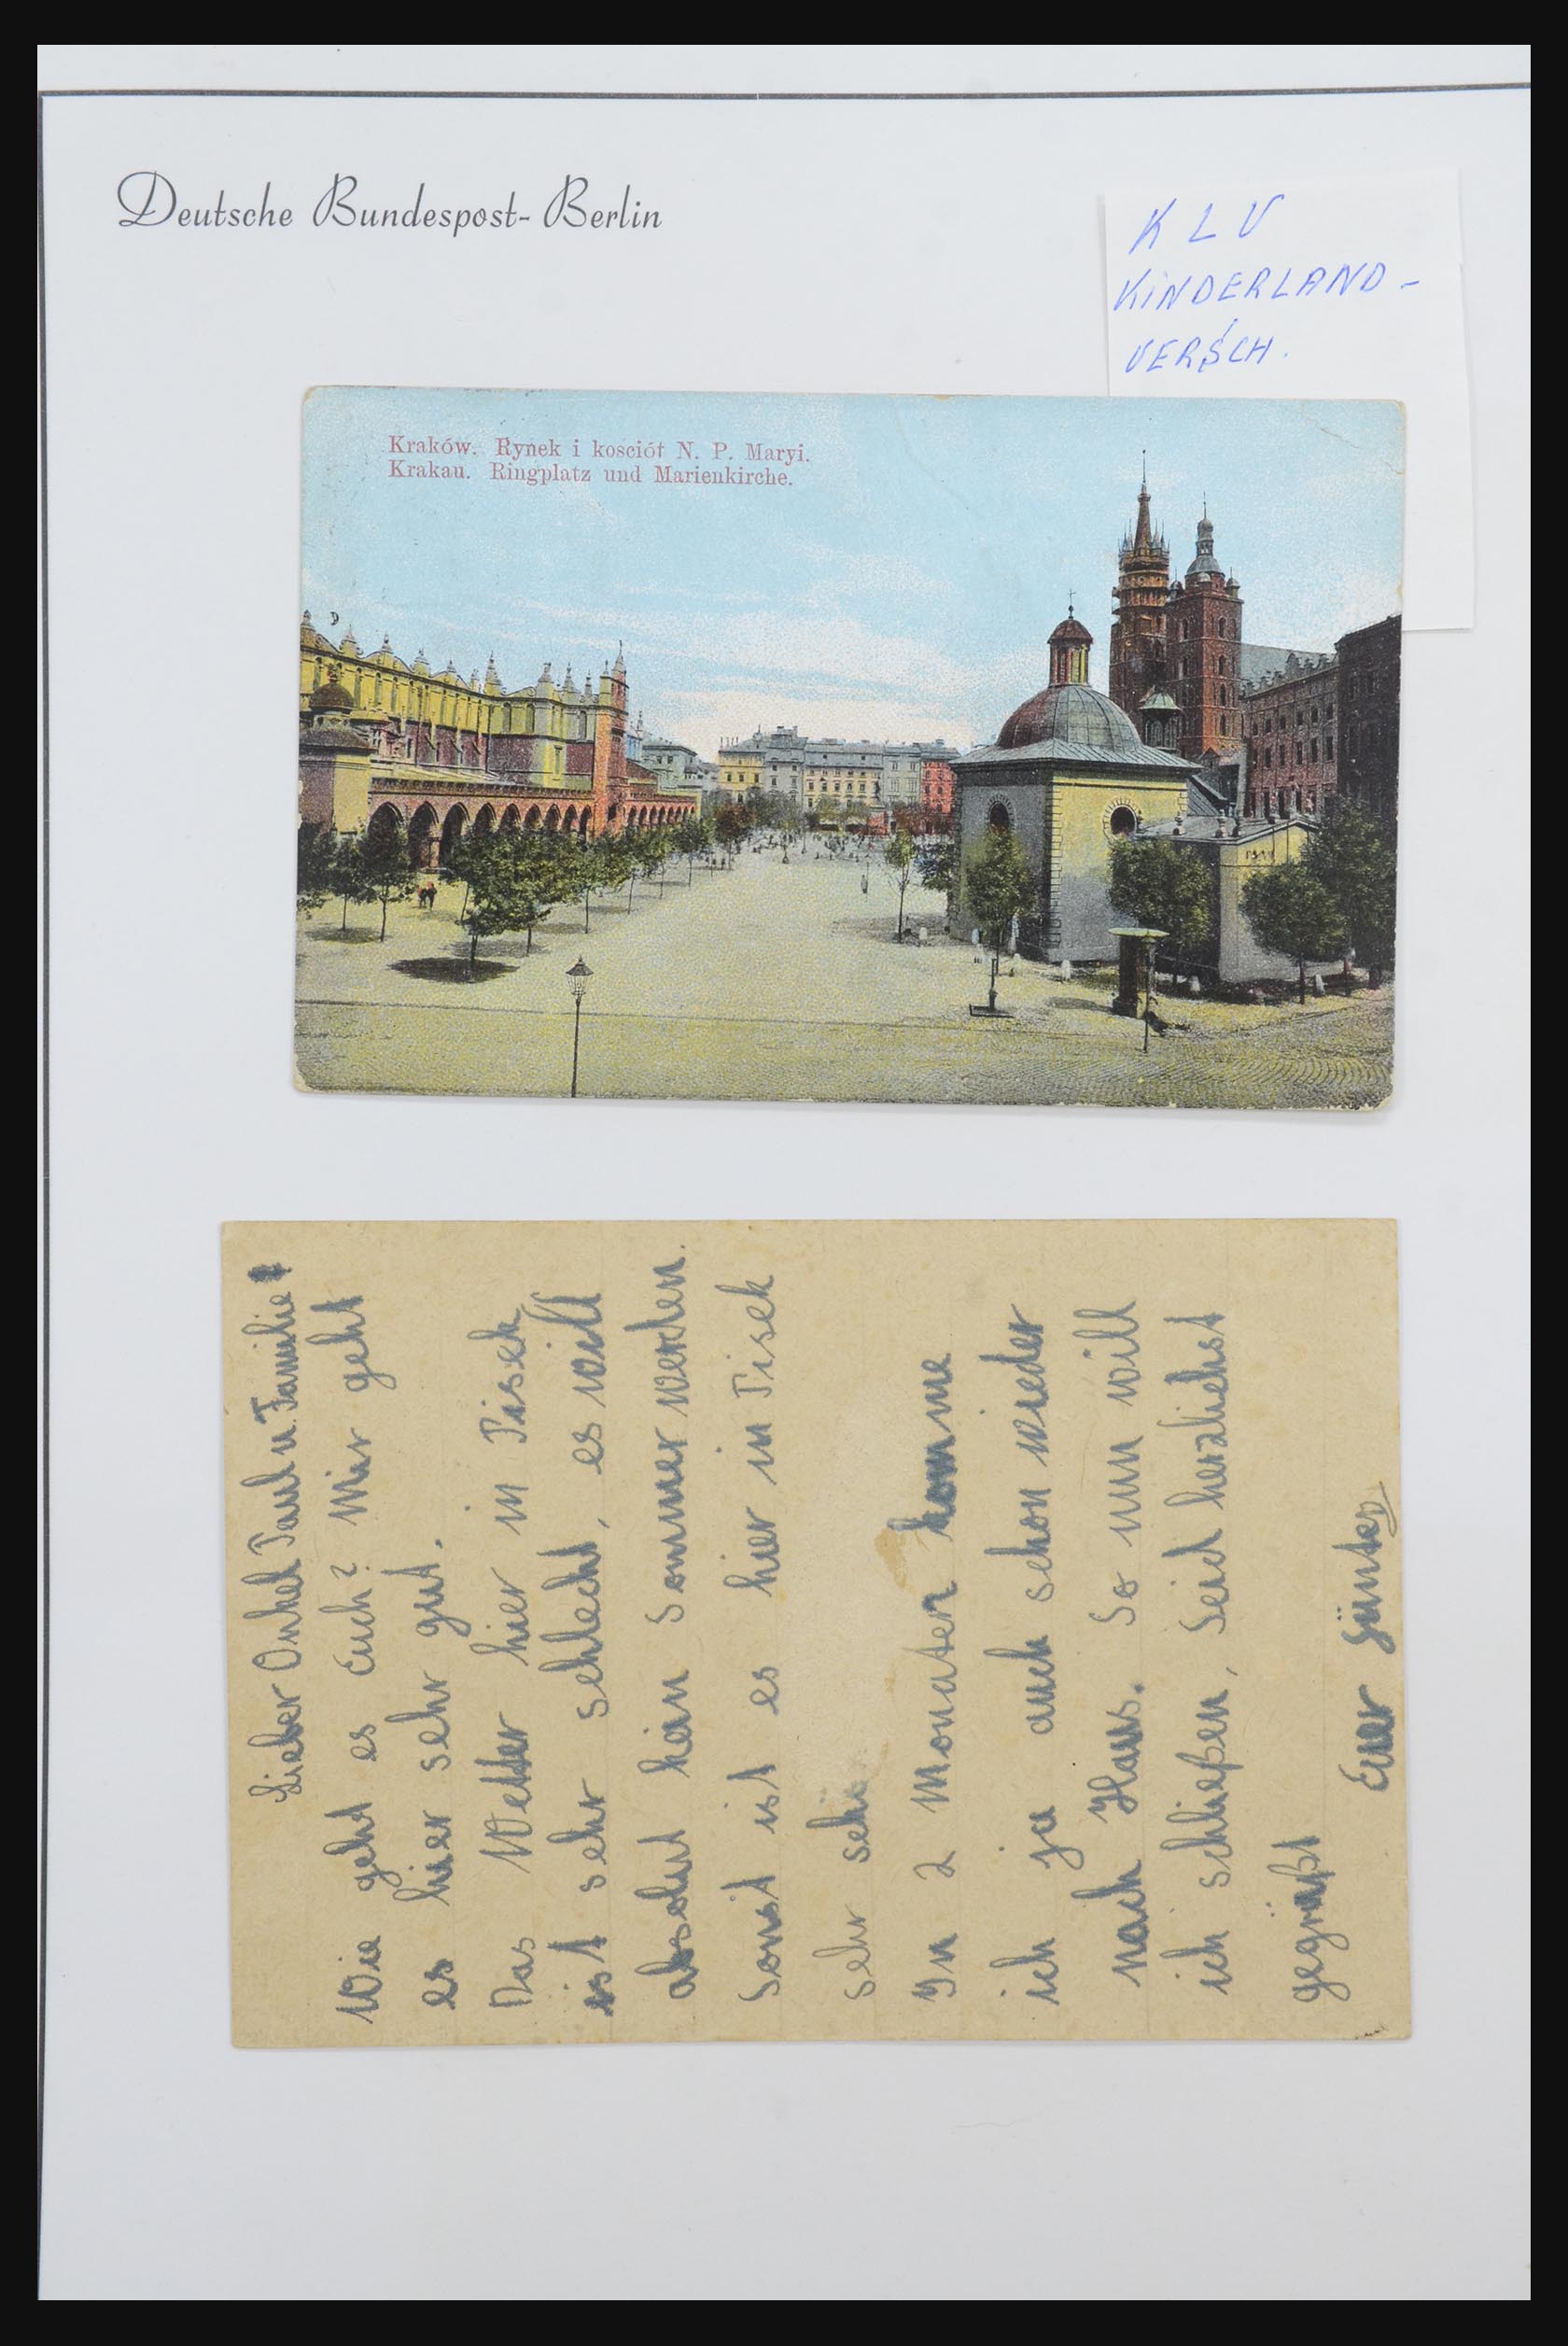 Deutsche Bundespost-Berlin
KLV
KINDERLAND-
VERSCH.
Kraków. Rynek i kosciół N. P. Maryi.
Krakau. Ringplatz und Marienkirche.
Lieber Onkel Paul u. Familie!
Wie geht es Euch? Mir geht
es hier sehr gut.
Das Wetter hier in Pisek
ist sehr schlecht, es will
absolut kein Sommer werden.
Sonst ist es hier in Pisek
sehr schö
In 2 Monaten komme
ich ja auch schon wieder
nach Haus. So nun will
ich schließen, Seid herzlichst
gegrüßt
Euer Günter